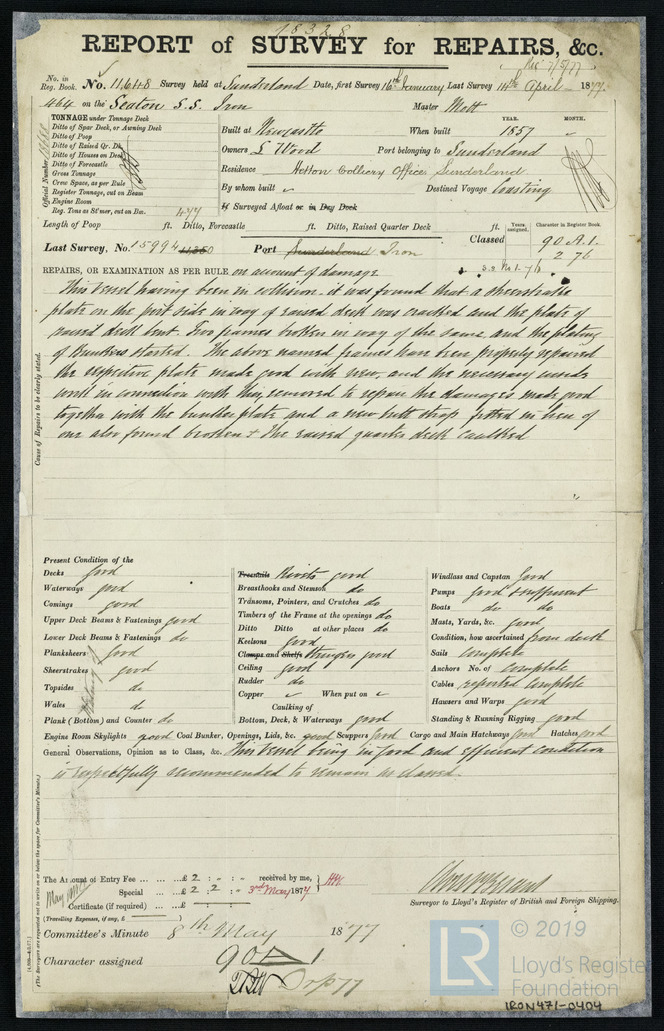 18328
REPORT of SURVEY for REPAIRS, &c.
Rec 7/5/77
No. in Reg. Book. No. 11,648 Survey held at Sunderland Date, first Survey 16th January Last Survey 14th April 1877
464 on the Seaton S.S. Iron Master Mott
TONNAGE under Tonnage Deck
Ditto of Spar Deck, or Awning Deck
Ditto of Poop
Ditto of Raised Qr. Dk
Ditto of Houses on Deck
Ditto of Forecastle
Gross Tonnage
Crew Space, as per Rule
Register Tonnage, cut on Beam
Engine Room
Reg. Tons as St'mer, cut on Bm. 477
Official Number
YEAR. MONTH.
Built at Newcastle When built 1857
Owners L Wood Port belonging to Sunderland
Residence Hetton Colliery Office, Sunderland
By whom built Destined Voyage Coasting
If Surveyed Afloat or in Dry Dock
Length of Poop ft. Ditto, Forecastle ft. Ditto, Raised Quarter Deck ft.
Years assigned. Character in Register Book.
Last Survey, No. 15994 Port Sunderland Iron Classed 90 A.1.
2 76
REPAIRS, OR EXAMINATION AS PER RULE on account of damage
This vessel having been in collision it was found that a sheerstrake
plate on the port side in way of raised deck was cracked and the plate of
raised deck bent. Two frames broken in way of the same and the plating
of Bunkers started. The above named frames have been properly repaired
the respective plate made good with new, and the necessary inside
work in connection with this, removed to repair the damages made good
together with the bunker plate and a new butt strap fitted in lieu of
one also found broken & the raised quarter deck caulked
Cause of Repairs to be clearly stated.
Present Condition of the
Decks good
Waterways good
Comings good
Upper Deck Beams & Fastenings good
Lower Deck Beams & Fastenings do
Planksheers good
Sheerstrakes good
Topsides do
Wales do
Plank (Bottom) and Counter do
Treenails Rivets good
Breasthooks and Stemson do
Transoms, Pointers, and Crutches do
Timbers of the Frame at the openings do
Ditto Ditto at other places do
Keelsons good
Clamps and Shelfs Stringers good
Ceiling good
Rudder do
Copper When put on
Caulking of
Bottom, Deck, & Waterways good
Windlass and Capstan good
Pumps good & sufficient
Boats do do
Masts, Yards, &c. good
Condition, how ascertained from deck
Sails complete
Anchors No. of complete
Cables reported complete
Hawsers and Warps good
Standing & Running Rigging good
Engine Room Skylights good Coal Bunker, Openings, Lids, &c. good Scuppers good Cargo and Main Hatchways good Hatches good
General Observations, Opinion as to Class, &c. This vessel being in good and efficient condition
is respectfully recommended to remain as classed.
The Amount of Entry Fee ... ... £ 2 : - : - received by me,
Special ... £ 2 : 2 : - 3rd May 1877
Certificate (if required) ... £ — : — : —
(Travelling Expenses, if any, £ )
Surveyor to Lloyd's Register of British and Foreign Shipping.
Committee's Minute 8th May 1877
Character assigned 90 A 1
© 2019
LR
Lloyd's Register
Foundation
IRON471-0404